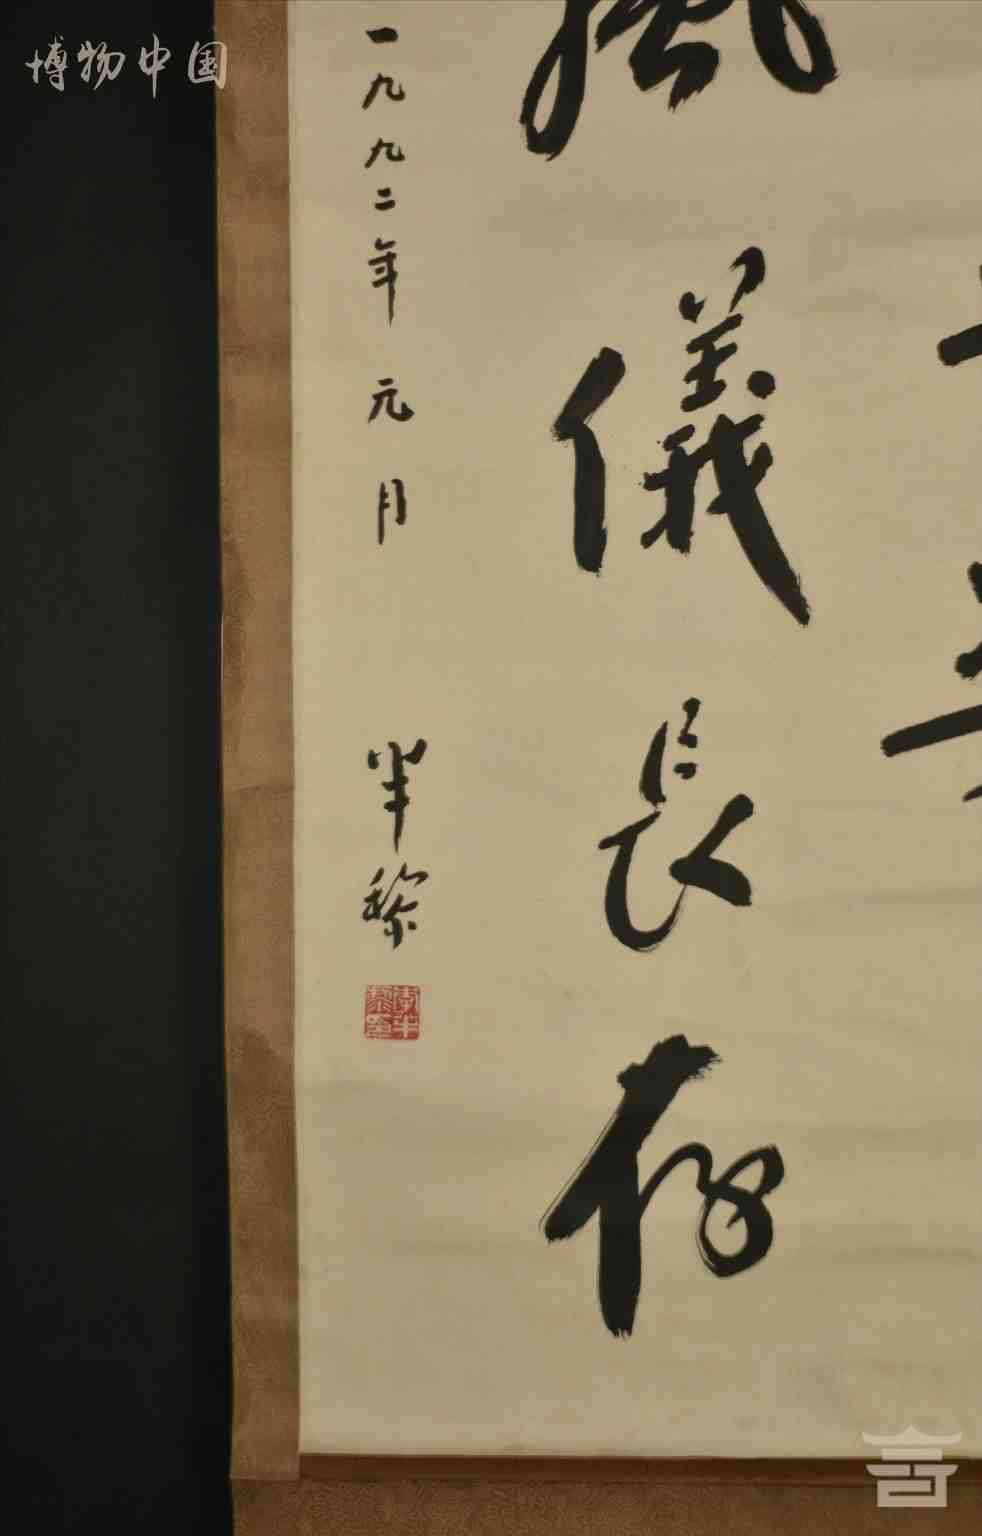 博物中国
風儀長存
一九九二年元月 半黎
李半黎